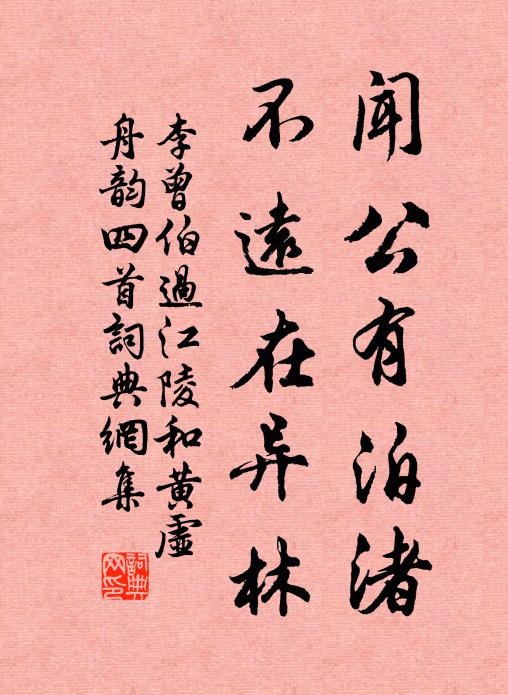 闻公有泊渚
不遠在异林
李曾伯過江陵和黄虚
舟韵四首詞典網集
詞典
网印